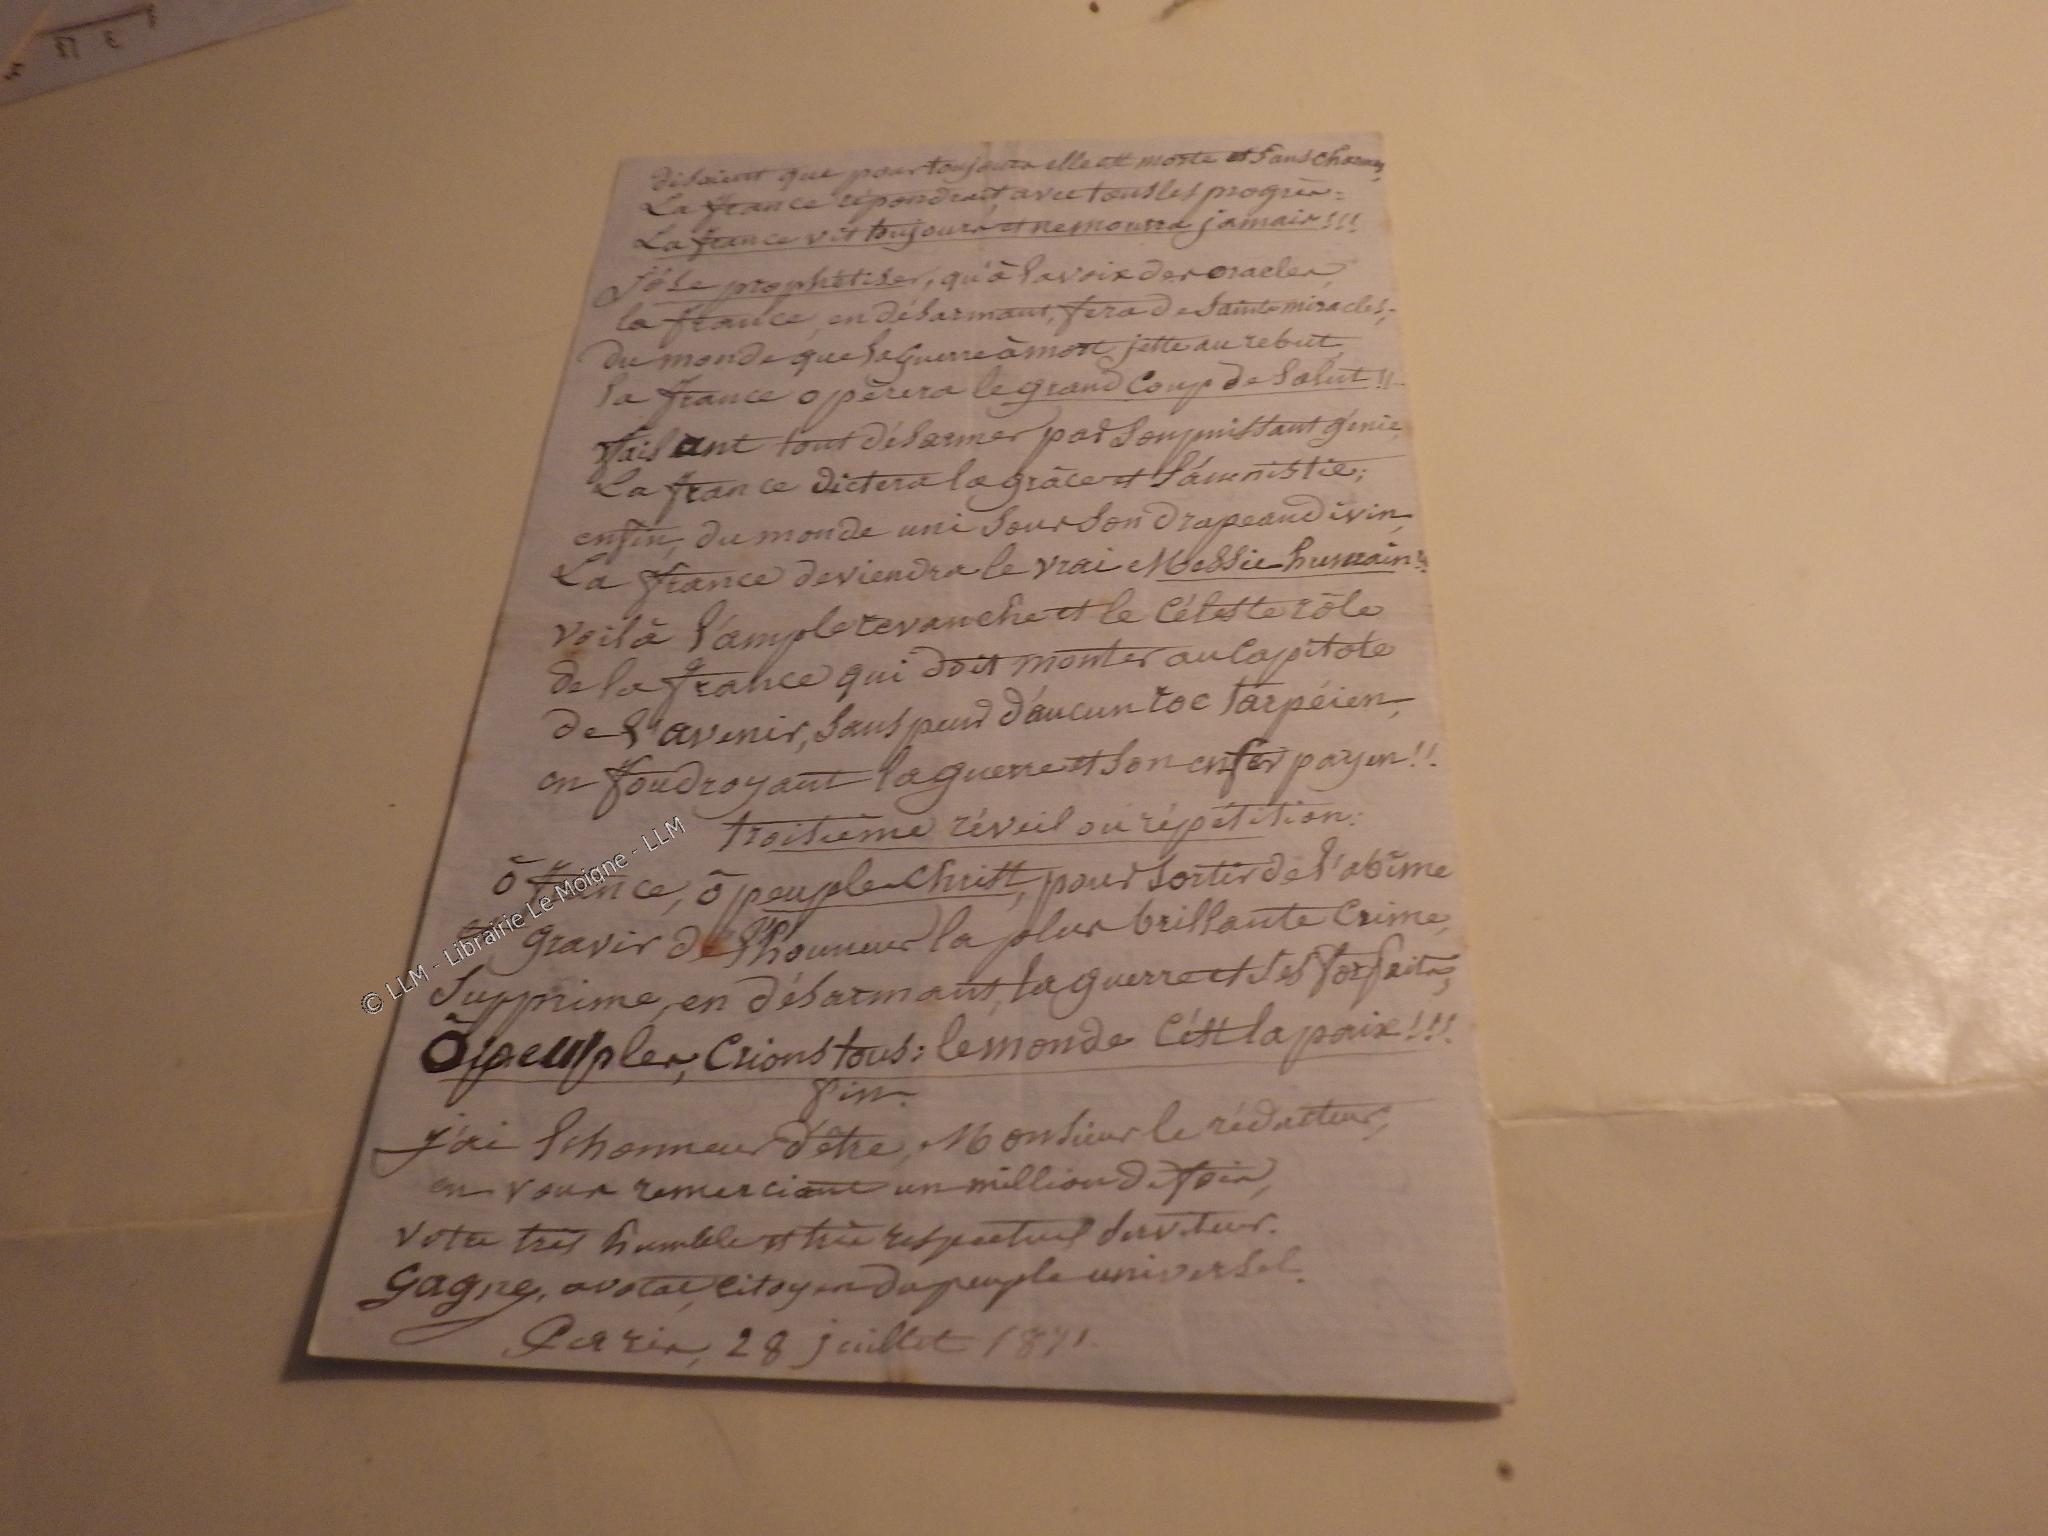 disaient que pour toujours elle est morte et sans charmes,
La france répondrait avec tous les progrès =
La france vit toujours et ne mourra jamais !!!
J'ose prophétiser, qu'à la voix des oracles,
la france, en désarmant, fera de saints miracles,
du monde que la guerre à mort jette au rebut,
la france opèrera le grand Coup de Salut !!
faisant tout désarmer par son puissant génie,
La france dictera la grâce et l'amnistie ;
enfin, du monde uni sous son drapeau divin,
La france deviendra le vrai Messie humain !!
voilà l'ample revanche et le Céleste rôle
de la france qui doit monter au Capitole
de l'avenir, sans peur d'aucun roc tarpéien,
en foudroyant la guerre et son enfer payen !!
troisième réveil ou répétition :
ô france, ô peuple Christ, pour sortir de l'abîme
et gravir de l'honneur la plus brillante Crime,
Supprime, en désarmant, la guerre et ses forfaits,
Ô peuples, Crions tous : le monde C'est la paix !!!
fin.
J'ai l'honneur d'être, Monsieur le rédacteur,
en vous remerciant un million de fois,
votre très humble et très respectueux serviteur.
Gagne, avocat, Citoyen du peuple universel.
Paris, 28 juillet 1871.
© LLM - Librairie Le Moigne - LLM